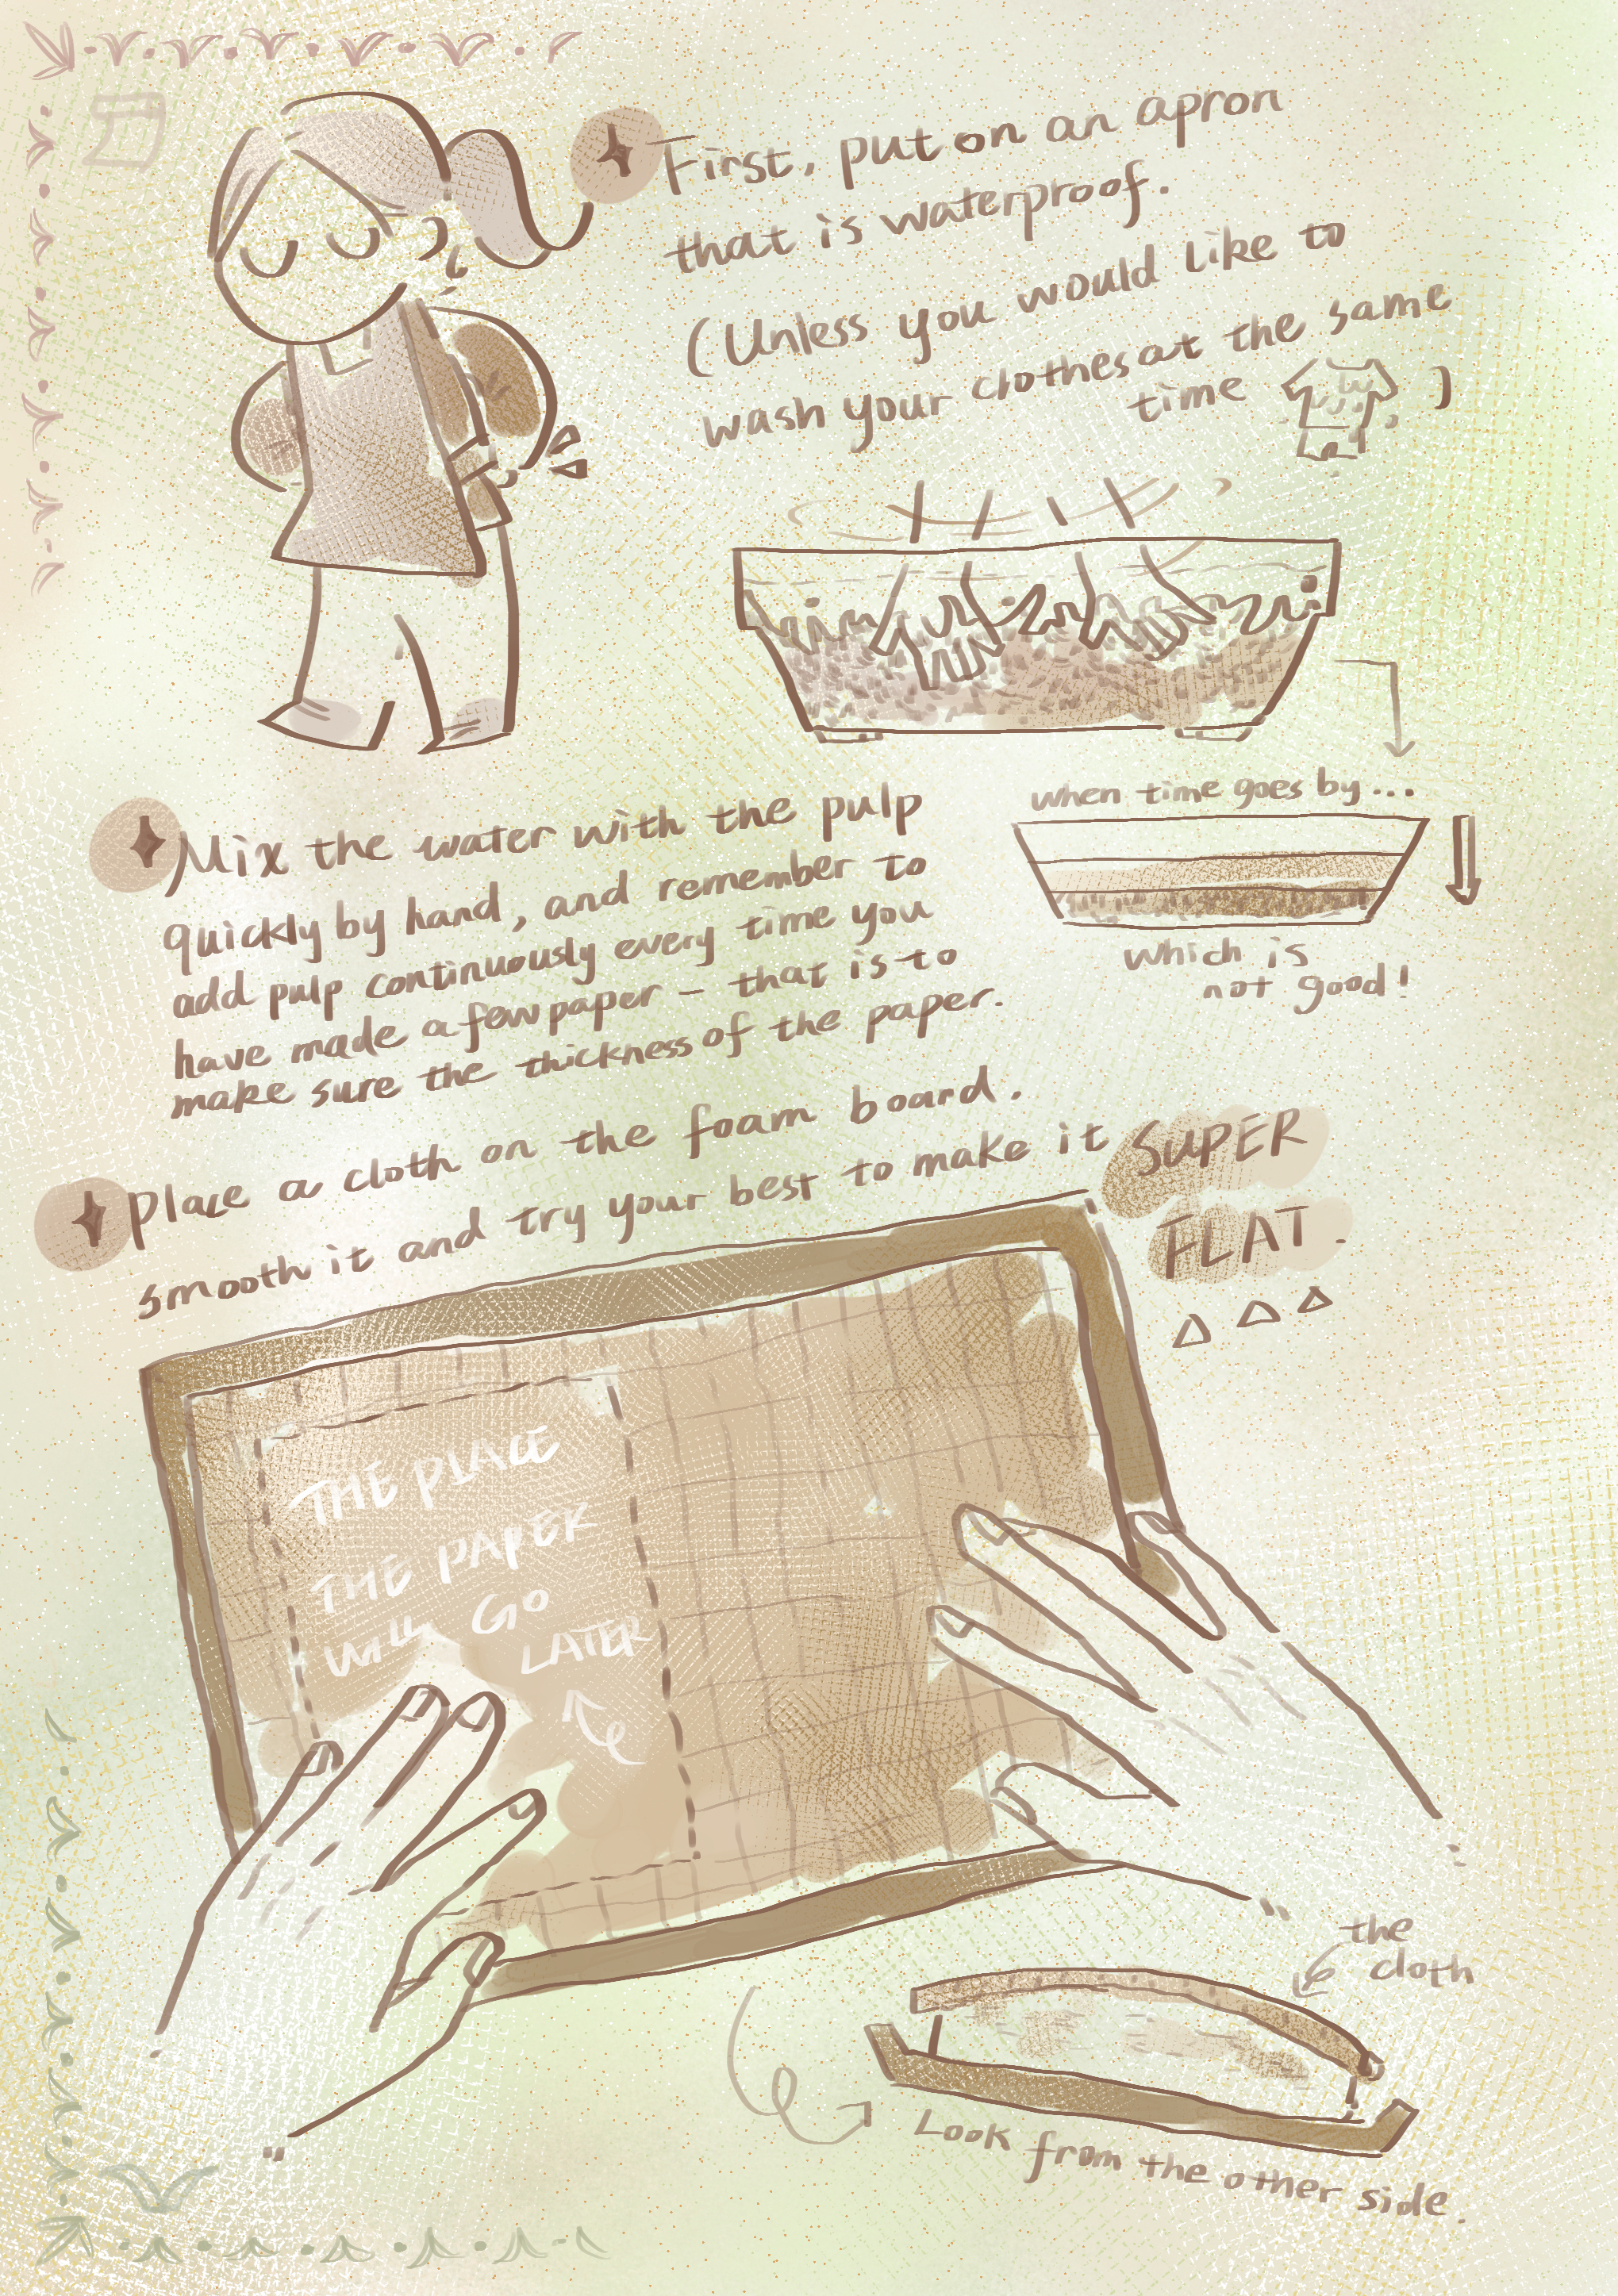 First, put on an apron
that is waterproof.
(Unless you would like to
wash your clothes at the same
time )
Mix the water with the pulp
quickly by hand, and remember to
add pulp continuously every time you
have made a few paper - that is to
make sure the thickness of the paper.
when time goes by...
which is
not good!
Place a cloth on the foam board.
smooth it and try your best to make it SUPER
FLAT.
THE PLACE
THE PAPER
WILL GO
LATER
the
cloth
Look from the other side.